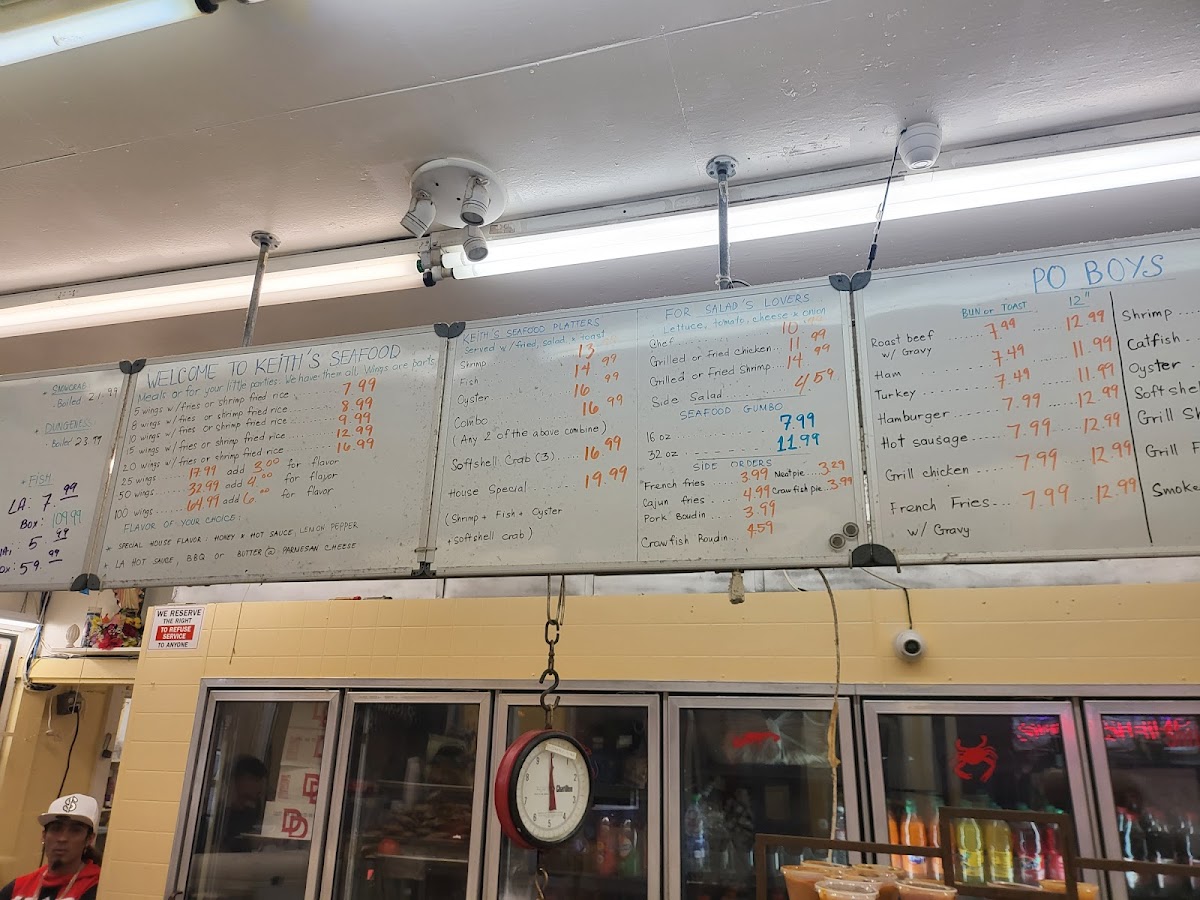 SNOWCRAB
Boiled 21.99
DUNGENESS
Boiled 23.99
FISH
LA: 7.99
Box: 109.99
5.99
59.99
WELCOME TO KEITH'S SEAFOOD
Meals or for your little parties. We have them all. Wings are parts
5 wings w/fries or shrimp fried rice 7.99
8 wings w/fries or shrimp fried rice 8.99
10 wings w/fries or shrimp fried rice 9.99
15 wings w/fries or shrimp fried rice 12.99
20 wings w/fries or shrimp fried rice 16.99
25 wings 17.99 add 3.00 for flavor
50 wings 32.99 add 4.00 for flayer
100 wings 64.99 add 6.00 for flavor
FLAVOR OF YOUR CHOICE:
* SPECIAL HOUSE FLAVOR: HONEY * HOT SAUCE, LEMON PEPPER
* LA HOT SAUCE, BBQ OR BUTTER @ PARMESAN CHEESE
KEITH'S SEAFOOD PLATTERS
Served w/fried, salad & toast
Shrimp 13
Fish 14.99
Oyster 16.99
Combo 16.99
(Any 2 of the above combine)
Softshell Crab (3) 16.99
House Special 19.99
(Shrimp + Fish + Oyster
+ softshell crab)
FOR SALAD'S LOVERS
Lettuce, tomato, cheese & onion
Chef 10.99
Grilled or fried chicken 11.99
Grilled or fried Shrimp 14.99
Side Salad 4.59
SEAFOOD GUMBO
16 oz 7.99
32 oz 11.99
SIDE ORDERS
French fries 3.99 Meat pie 3.29
Cajun fries 4.99 Crawfish pie 3.99
Pork Boudin 3.99
Crawfish Boudin 4.59
PO BOYS
BUN or TOAST 12"
Roast beef 7.99 12.99
w/ Gravy
Ham 7.49 11.99
Turkey 7.49 11.99
Hamburger 7.99 12.99
Hot sausage 7.99 12.99
Grill chicken 7.99 12.99
French Fries 7.99 12.99
w/ Gravy
Shrimp
Catfish
Oyster
Softshel
Grill Sh
Grill F
Smoke
WE RESERVE
THE RIGHT
TO REFUSE
SERVICE
TO ANYONE